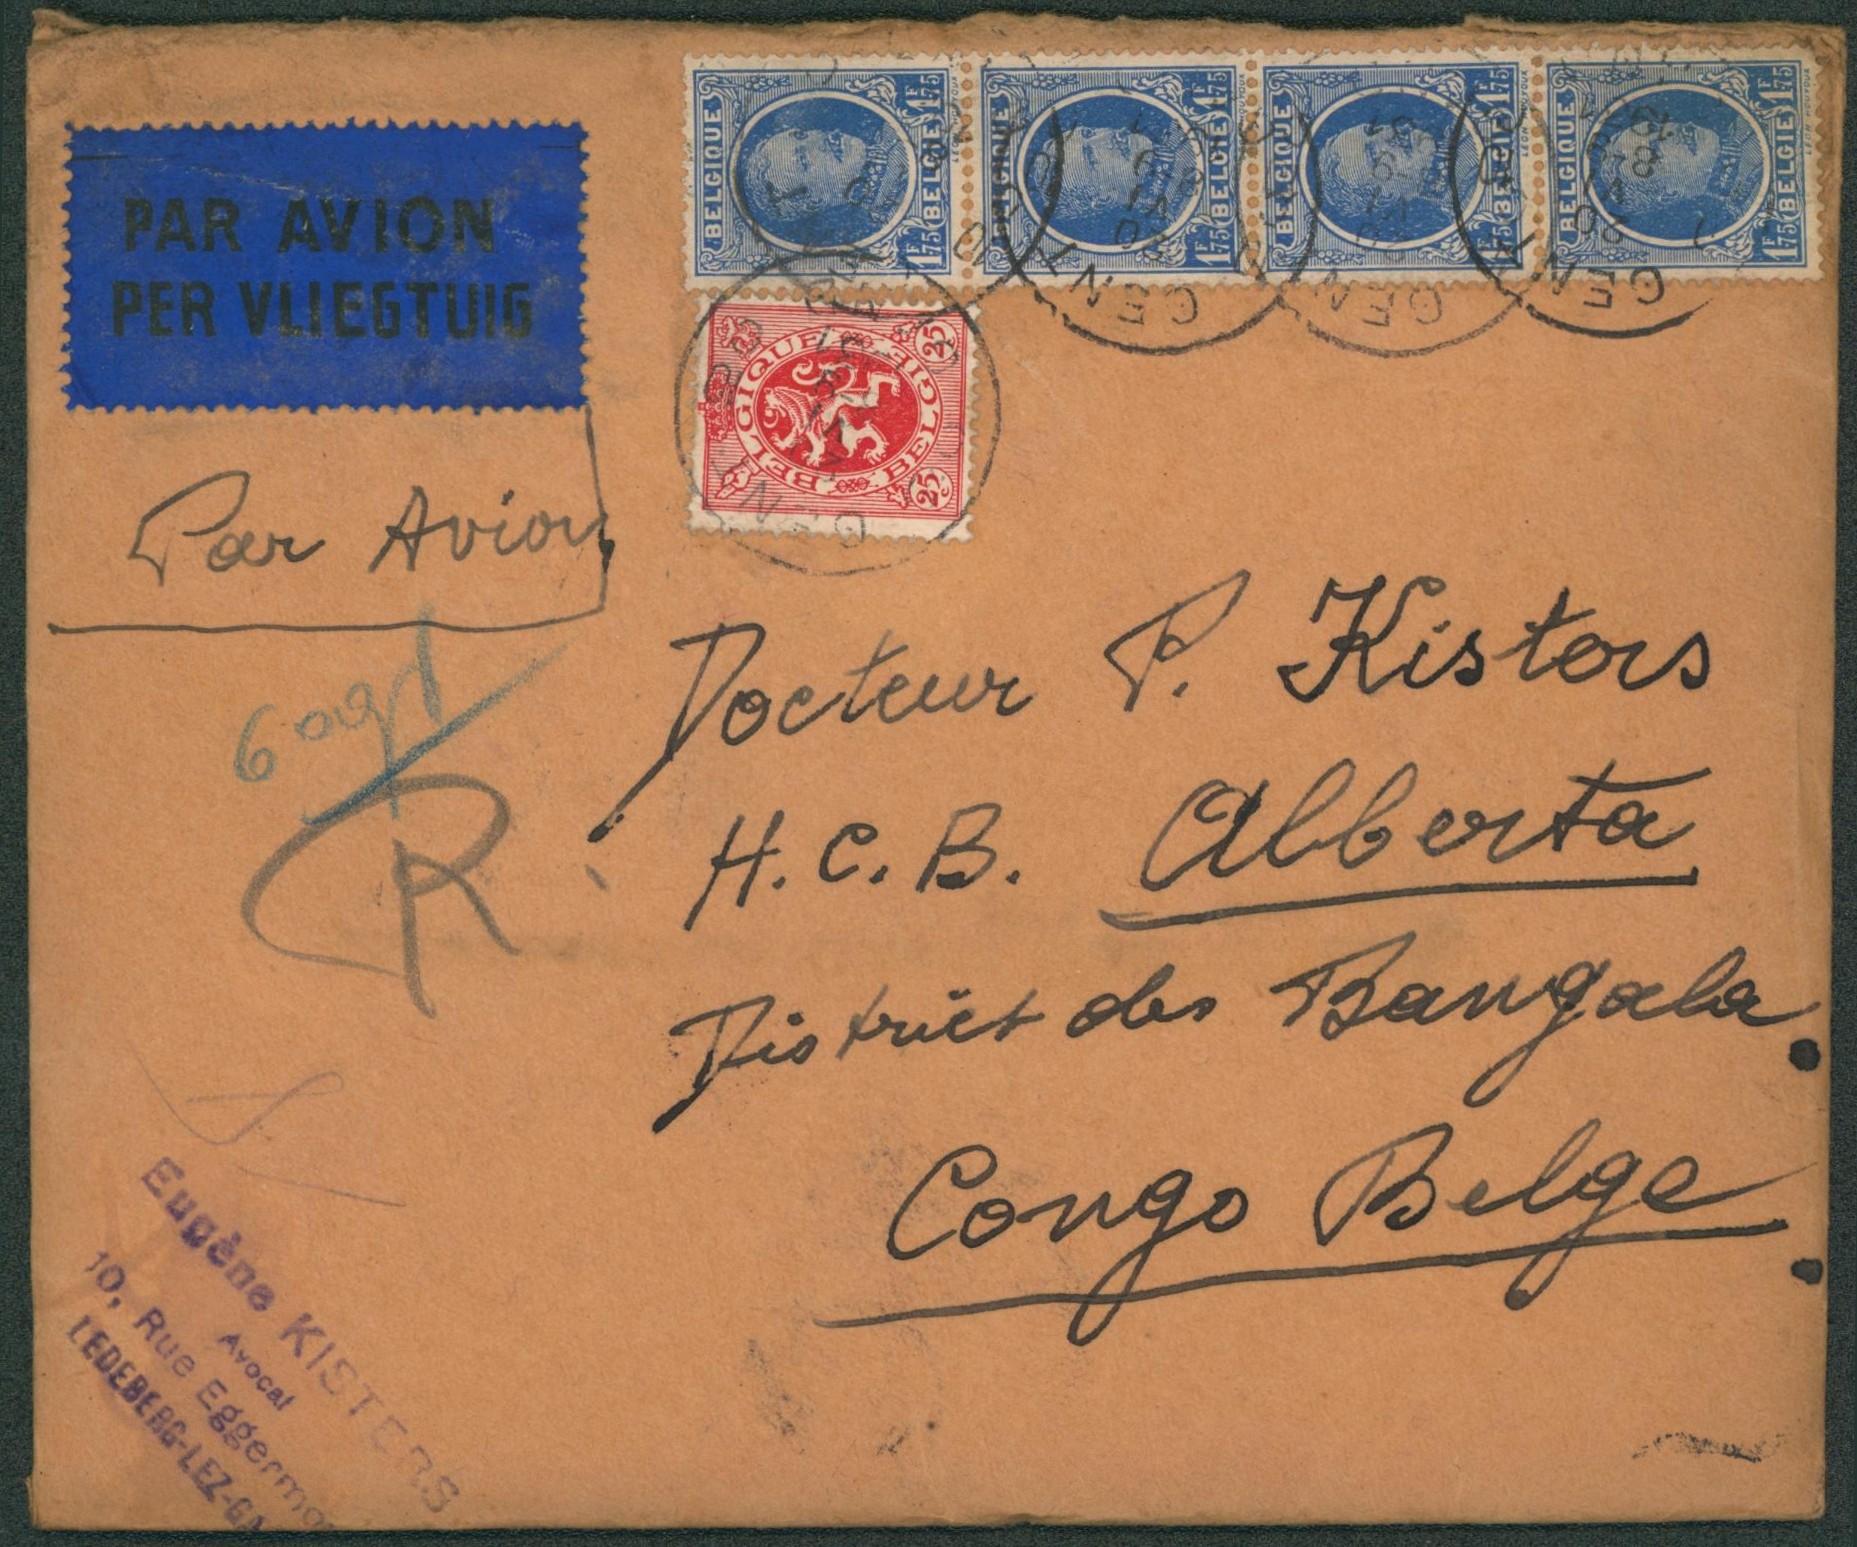 PAR AVION
PER VLIEGTUIG
BELGIQUE 1F75 BELGIË 1F75
BELGIQUE 1F75 BELGIË 1F75
BELGIQUE 1F75 BELGIË 1F75
BELGIQUE 1F75 BELGIË 1F75
BELGIQUE BELGIË 25 25
GENT
Par Avion
Docteur P. Kisters
H.C.B. Alberta
District des Bangala
Congo Belge
R
Eugène KISTERS
Avocat
10, Rue Eggermo
LEDEBERG-LEZ-GA